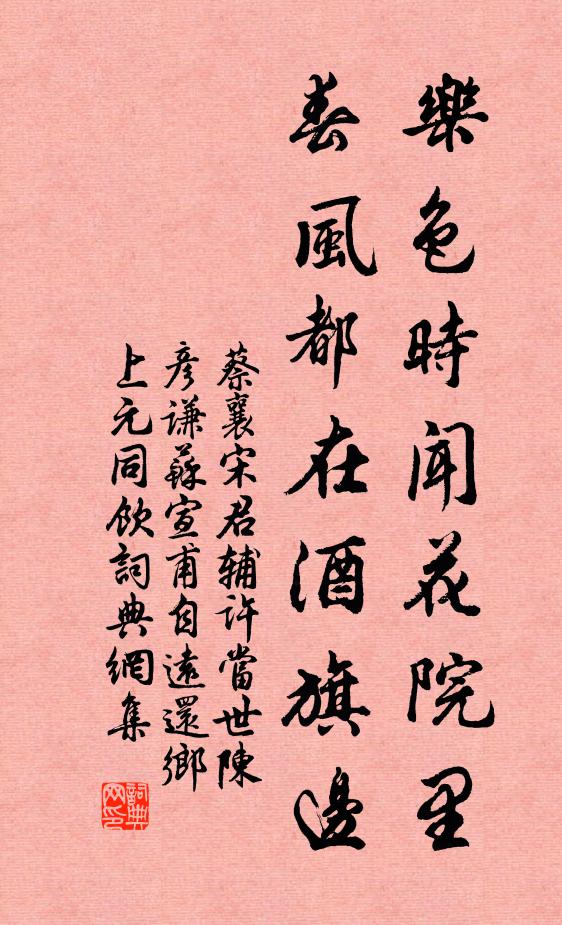 樂色時闻花院里
春風都在酒旗邊
蔡襄宋君辅许當世陳
彦谦蘇宣甫自遠還鄉
上元同飲詞典網集
詞典
网印